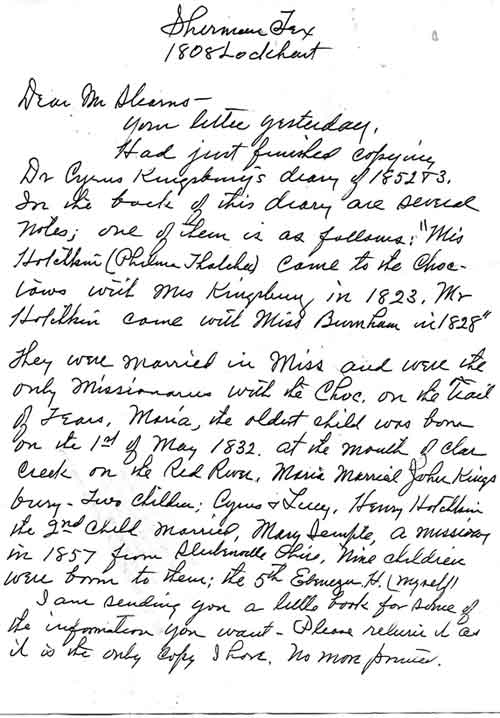 Sherman Tex
1808 Lockhart
Dear Mr Stearns -
Your letter yesterday.
Had just finished copying
Dr Cyrus Kingsbury's diary of 1852 & 3.
In the back of this diary are several
notes; one of them is as follows: "Mis
Hotchkin (Philena Thatcher) came to the Choc-
taws with Mrs Kingsbury in 1823. Mr
Hotchkin came with Miss Burnham in 1828"
They were married in Miss and were the
only Missionaries with the Choc. on the Trail
of Tears. Maria, the oldest child was born
on the 1st of May 1832. at the mouth of Clear
Creek on the Red River. Maria Married John Kings
bury - two children; Cyrus & Lucy. Henry Hotchkin
the 2nd child married, Mary Semple, a missionary
in 1857 from Steubenville Ohio. Nine children
were born to them; the 5th Ebenezer H. (myself)
I am sending you a little book for some of
the information you want - Please return it as
it is the only copy I have. No more printed.